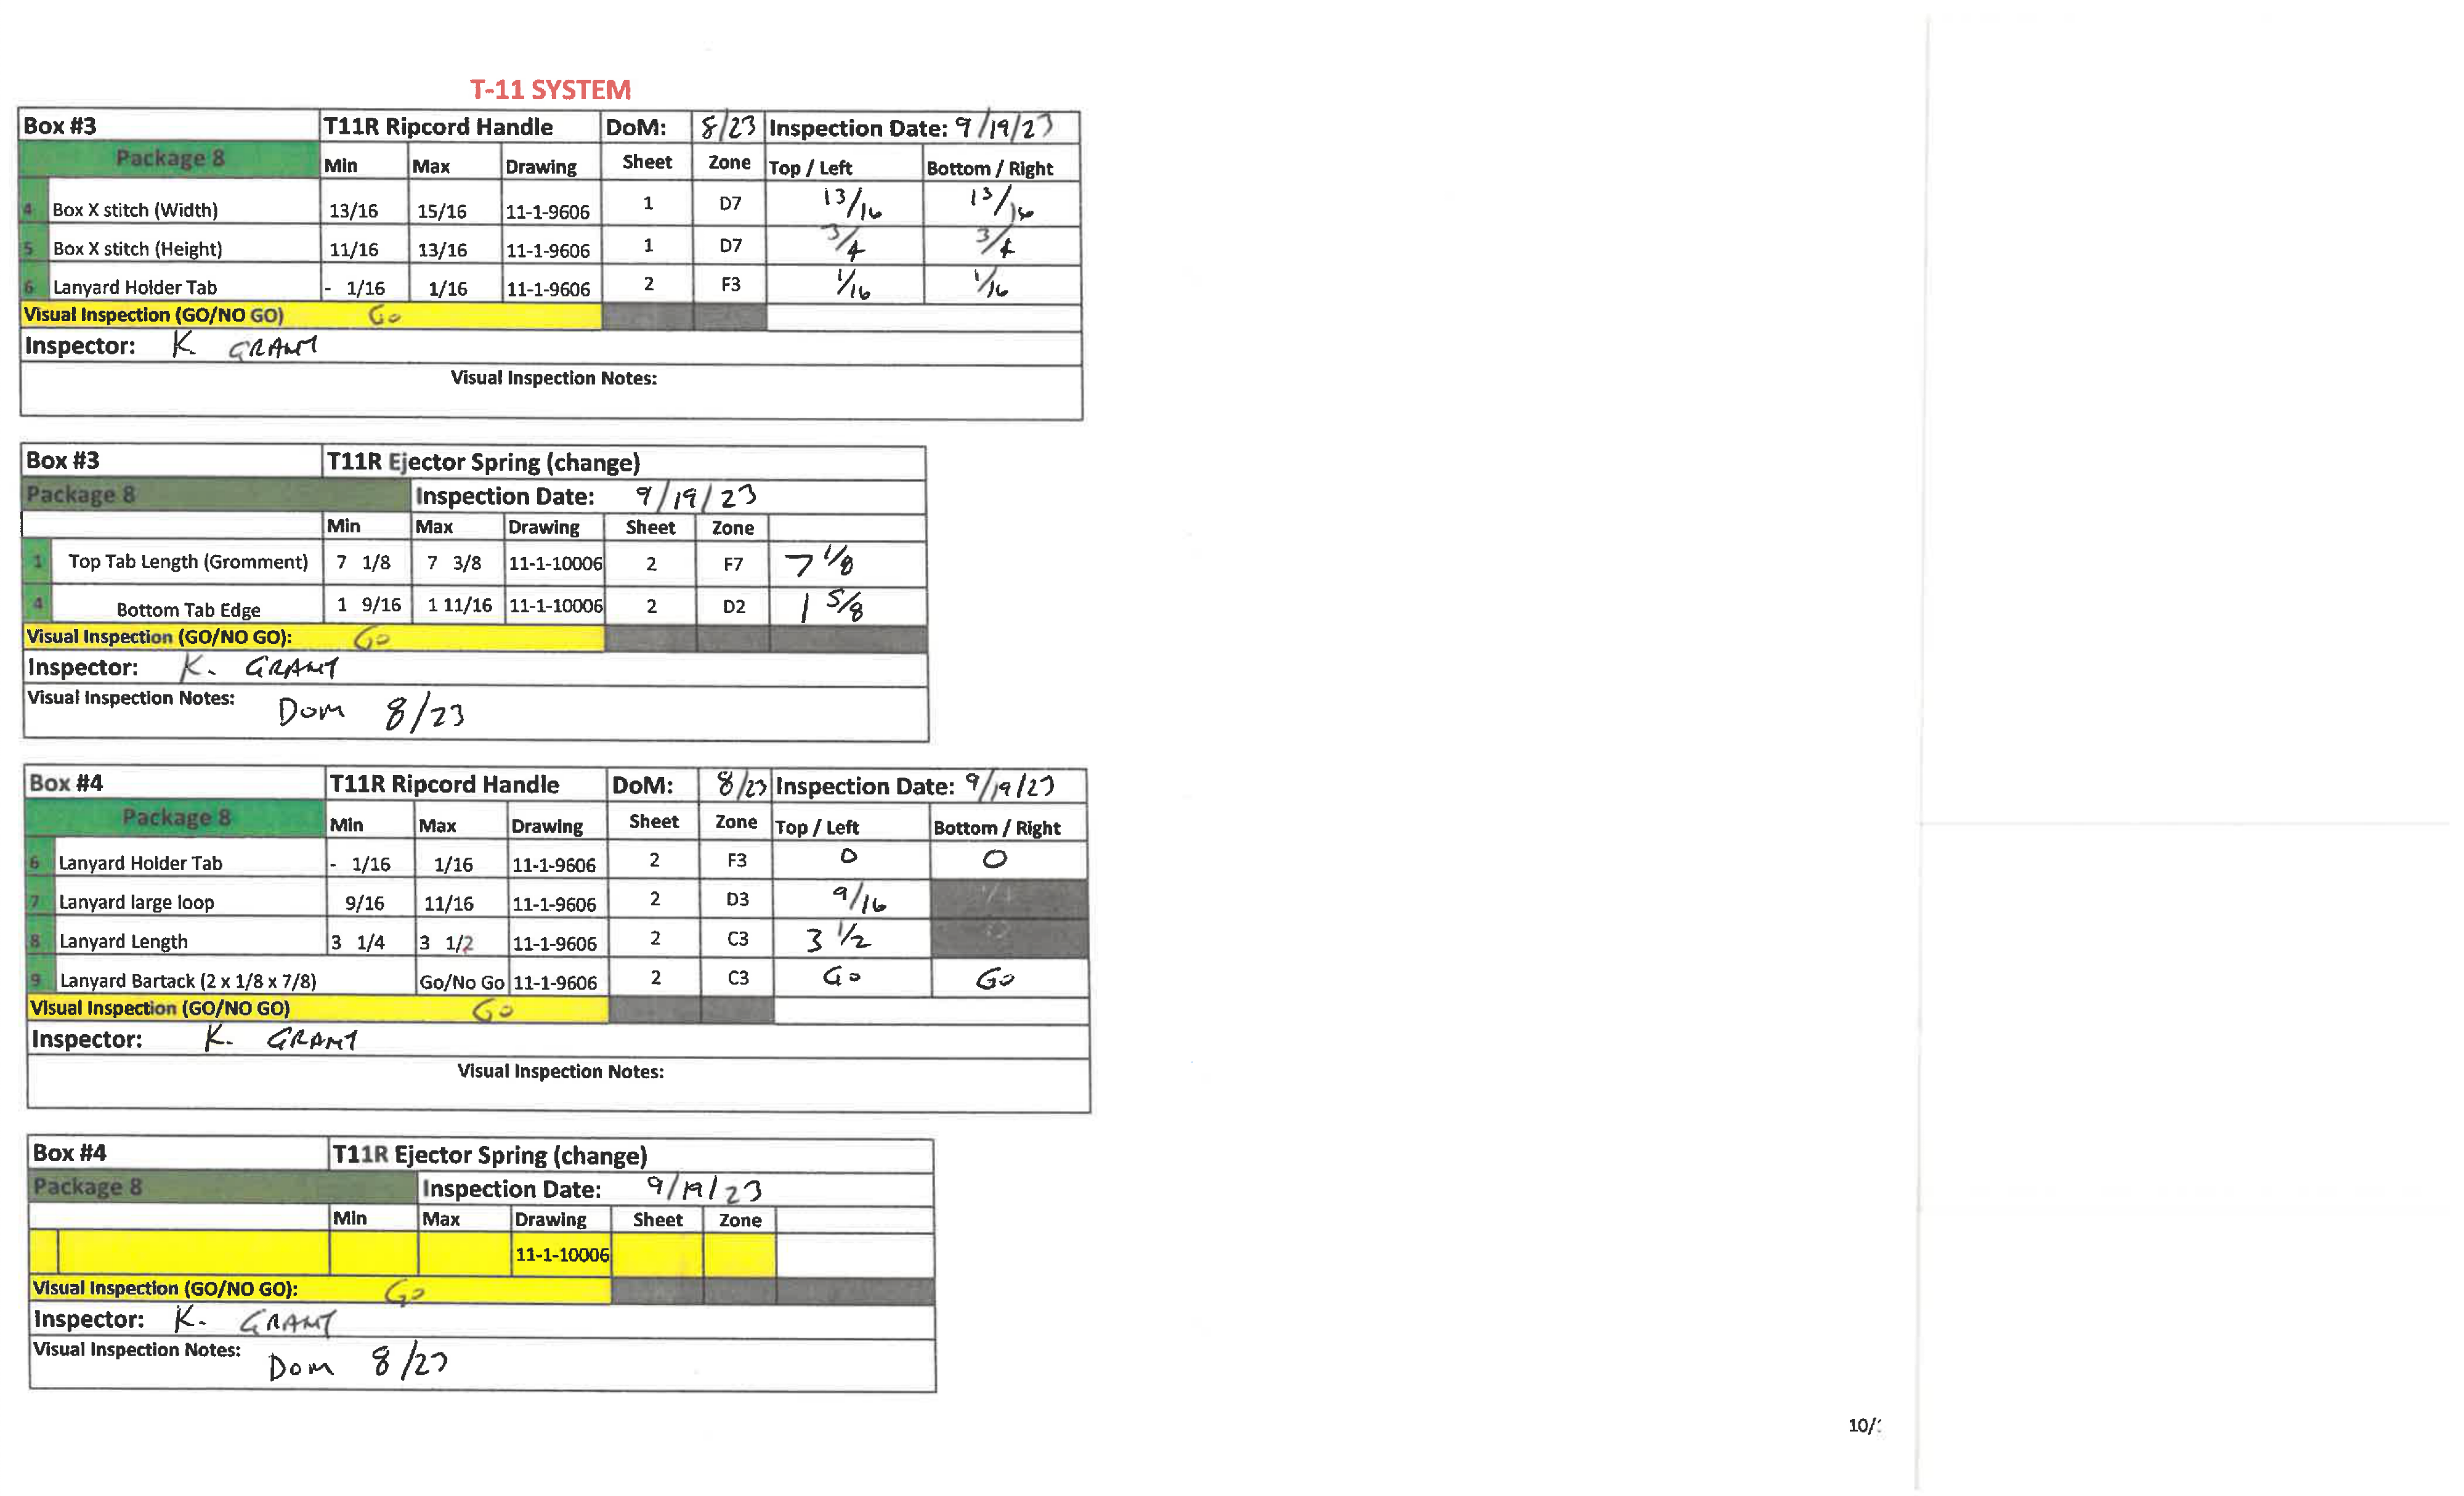 T-11 SYSTEM
Box #3 T11R Ripcord Handle DoM: 8/23 Inspection Date: 9/19/23
Package 8 Min Max Drawing Sheet Zone Top / Left Bottom / Right
4 Box X stitch (Width) 13/16 15/16 11-1-9606 1 D7 13/16 13/16
5 Box X stitch (Height) 11/16 13/16 11-1-9606 1 D7 3/4 3/4
6 Lanyard Holder Tab - 1/16 1/16 11-1-9606 2 F3 1/16 1/16
Visual Inspection (GO/NO GO) Go
Inspector: K. GRANT
Visual Inspection Notes:
Box #3 T11R Ejector Spring (change)
Package 8 Inspection Date: 9/19/23
Min Max Drawing Sheet Zone
1 Top Tab Length (Gromment) 7 1/8 7 3/8 11-1-10006 2 F7 7 1/8
4 Bottom Tab Edge 1 9/16 1 11/16 11-1-10006 2 D2 1 5/8
Visual Inspection (GO/NO GO): Go
Inspector: K. GRANT
Visual Inspection Notes: Dom 8/23
Box #4 T11R Ripcord Handle DoM: 8/23 Inspection Date: 9/19/23
Package 8 Min Max Drawing Sheet Zone Top / Left Bottom / Right
6 Lanyard Holder Tab - 1/16 1/16 11-1-9606 2 F3 0 0
7 Lanyard large loop 9/16 11/16 11-1-9606 2 D3 9/16
8 Lanyard Length 3 1/4 3 1/2 11-1-9606 2 C3 3 1/2
9 Lanyard Bartack (2 x 1/8 x 7/8) Go/No Go 11-1-9606 2 C3 Go Go
Visual Inspection (GO/NO GO) Go
Inspector: K. GRANT
Visual Inspection Notes:
Box #4 T11R Ejector Spring (change)
Package 8 Inspection Date: 9/19/23
Min Max Drawing Sheet Zone
11-1-10006
Visual Inspection (GO/NO GO): Go
Inspector: K. GRANT
Visual Inspection Notes: Dom 8/23
10/